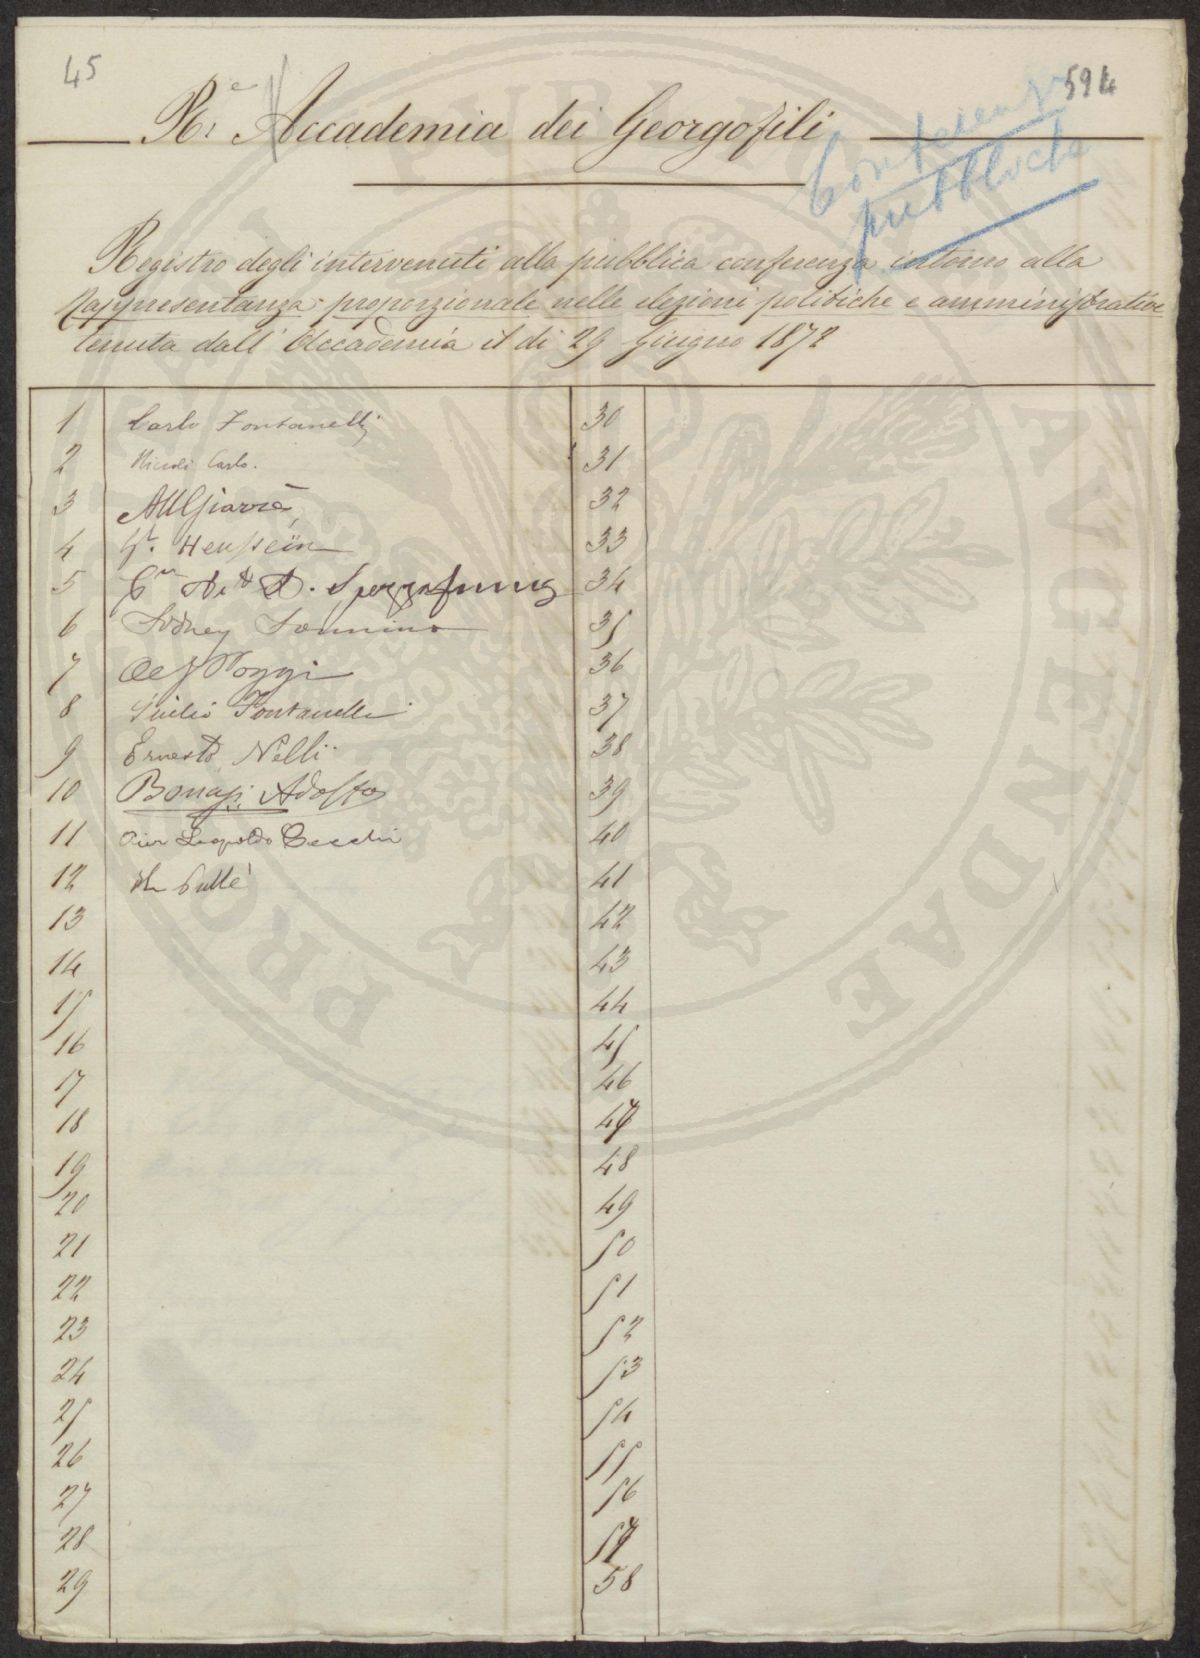 45
594
R.e Accademia dei Georgofili
Conferenze
pubbliche
Registro degli intervenuti alla pubblica conferenza intorno alla
rappresentanza proporzionale nelle elezioni politiche e amministrative
tenuta dall' Accademia il di 29 giugno 1872
1 Carlo Fontanelli
2 Niccoli Carlo.
3
4
5
6 Sidney Sonnino
7 Poggi
8 Giulio Fontanelli
9 Ernesto Nelli
10 Bonasi Adolfo
11 Pier Leopoldo Cecchi
12 Pullè
13
14
15
16
17
18
19
20
21
22
23
24
25
26
27
28
29
30
31
32
33
34
35
36
37
38
39
40
41
42
43
44
45
46
47
48
49
50
51
52
53
54
55
56
57
58
PUBLICAE
AVGENDAE